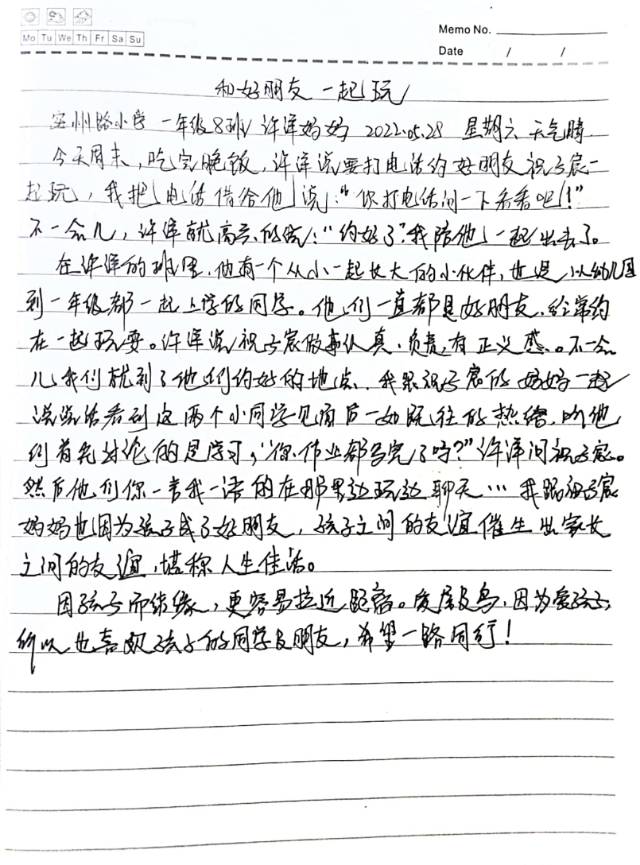 Memo No.
Mo Tu We Th Fr Sa Su
Date / /
和好朋友一起玩
州路小学 一年级8班 许洋妈妈 2022.05.28 星期六 天气晴
今天周末,吃完晚饭,许洋说要打电话约好朋友祝子宸一
起玩,我把电话借给他说:“你打电话问一下看看吧!”
不一会儿,许洋就高兴的说:“约好了”我陪他一起出去了。
在许洋的班里,他有一个从小一起长大的小伙伴,也是从幼儿园
到一年级都一起上学的同学。他们一直都是好朋友,经常约
在一起玩耍。许洋说祝子宸做事认真,负责,有正义感。不一会
儿我们就到了他们约好的地点,我跟祝子宸的妈妈一起
说说话看到这两个小同学见面后一如既往的热络,听他
们首先讨论的是学习,“你作业都写完了吗?”许洋问祝子宸。
然后他们你一言我一语的在那里边玩边聊天…我跟祝子宸
妈妈也因为孩子成了好朋友,孩子之间的友谊催生出家长
之间的友谊,堪称人生佳话。
因孩子而结缘,更容易拉近距离。爱屋及乌,因为爱孩子,
所以也喜欢孩子的同学及朋友,希望一路同行!